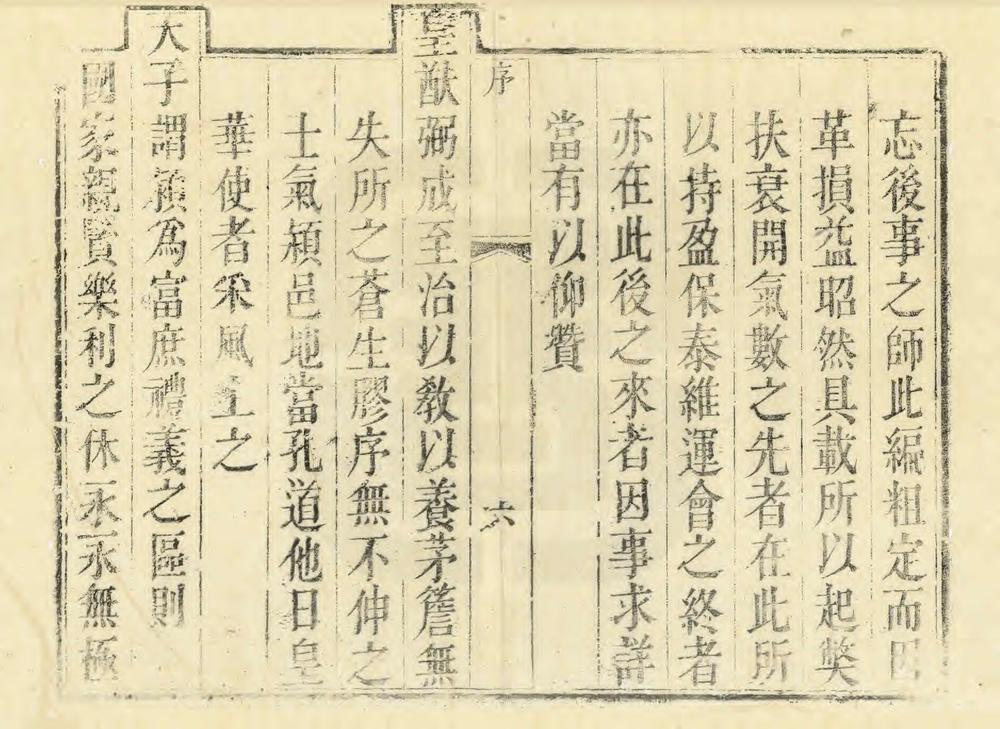 忘後事之師此編粗定而因
革損益昭然具載所以起獘
扶衰開氣數之先者在此所
以持盈保泰維運會之終者
亦在此後之來者因事求詳
當有以仰贊
序
六
皇猷弼成至治以敎以養茅簷無
失所之蒼生膠序無不伸之
士氣潁邑地當孔道他日皇
華使者釆風上之
天子謂潁爲富庶禮義之區則
國家親賢樂利之休永永無極